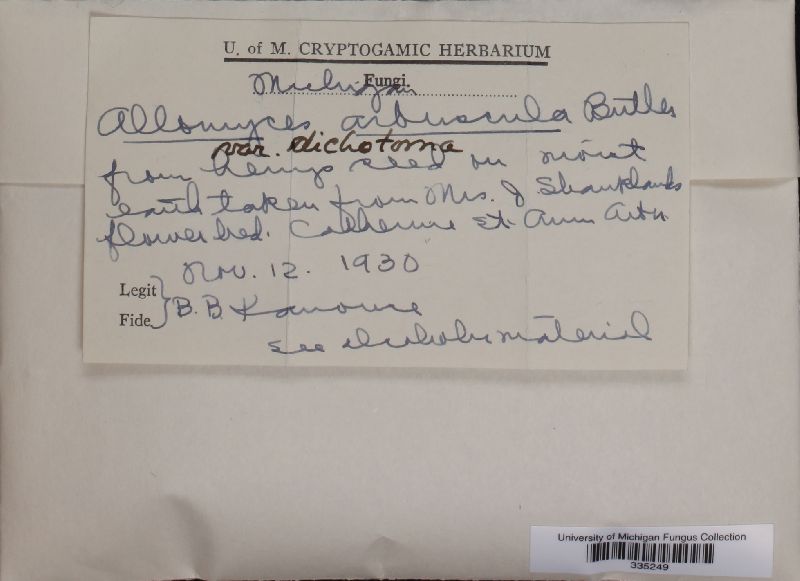 U. of M. CRYPTOGAMIC HERBARIUM
Michigan Fungi.
Allomyces arbuscula Butler
var. dichotoma
from hemp seed on moist
earth taken from Mrs. J Shanklands
flower bed. Catherine St. Ann Arbr.
Nov. 12. 1930
Legit
Fide
B. B. Kanouse
see alcoholic material
University of Michigan Fungus Collection
335249